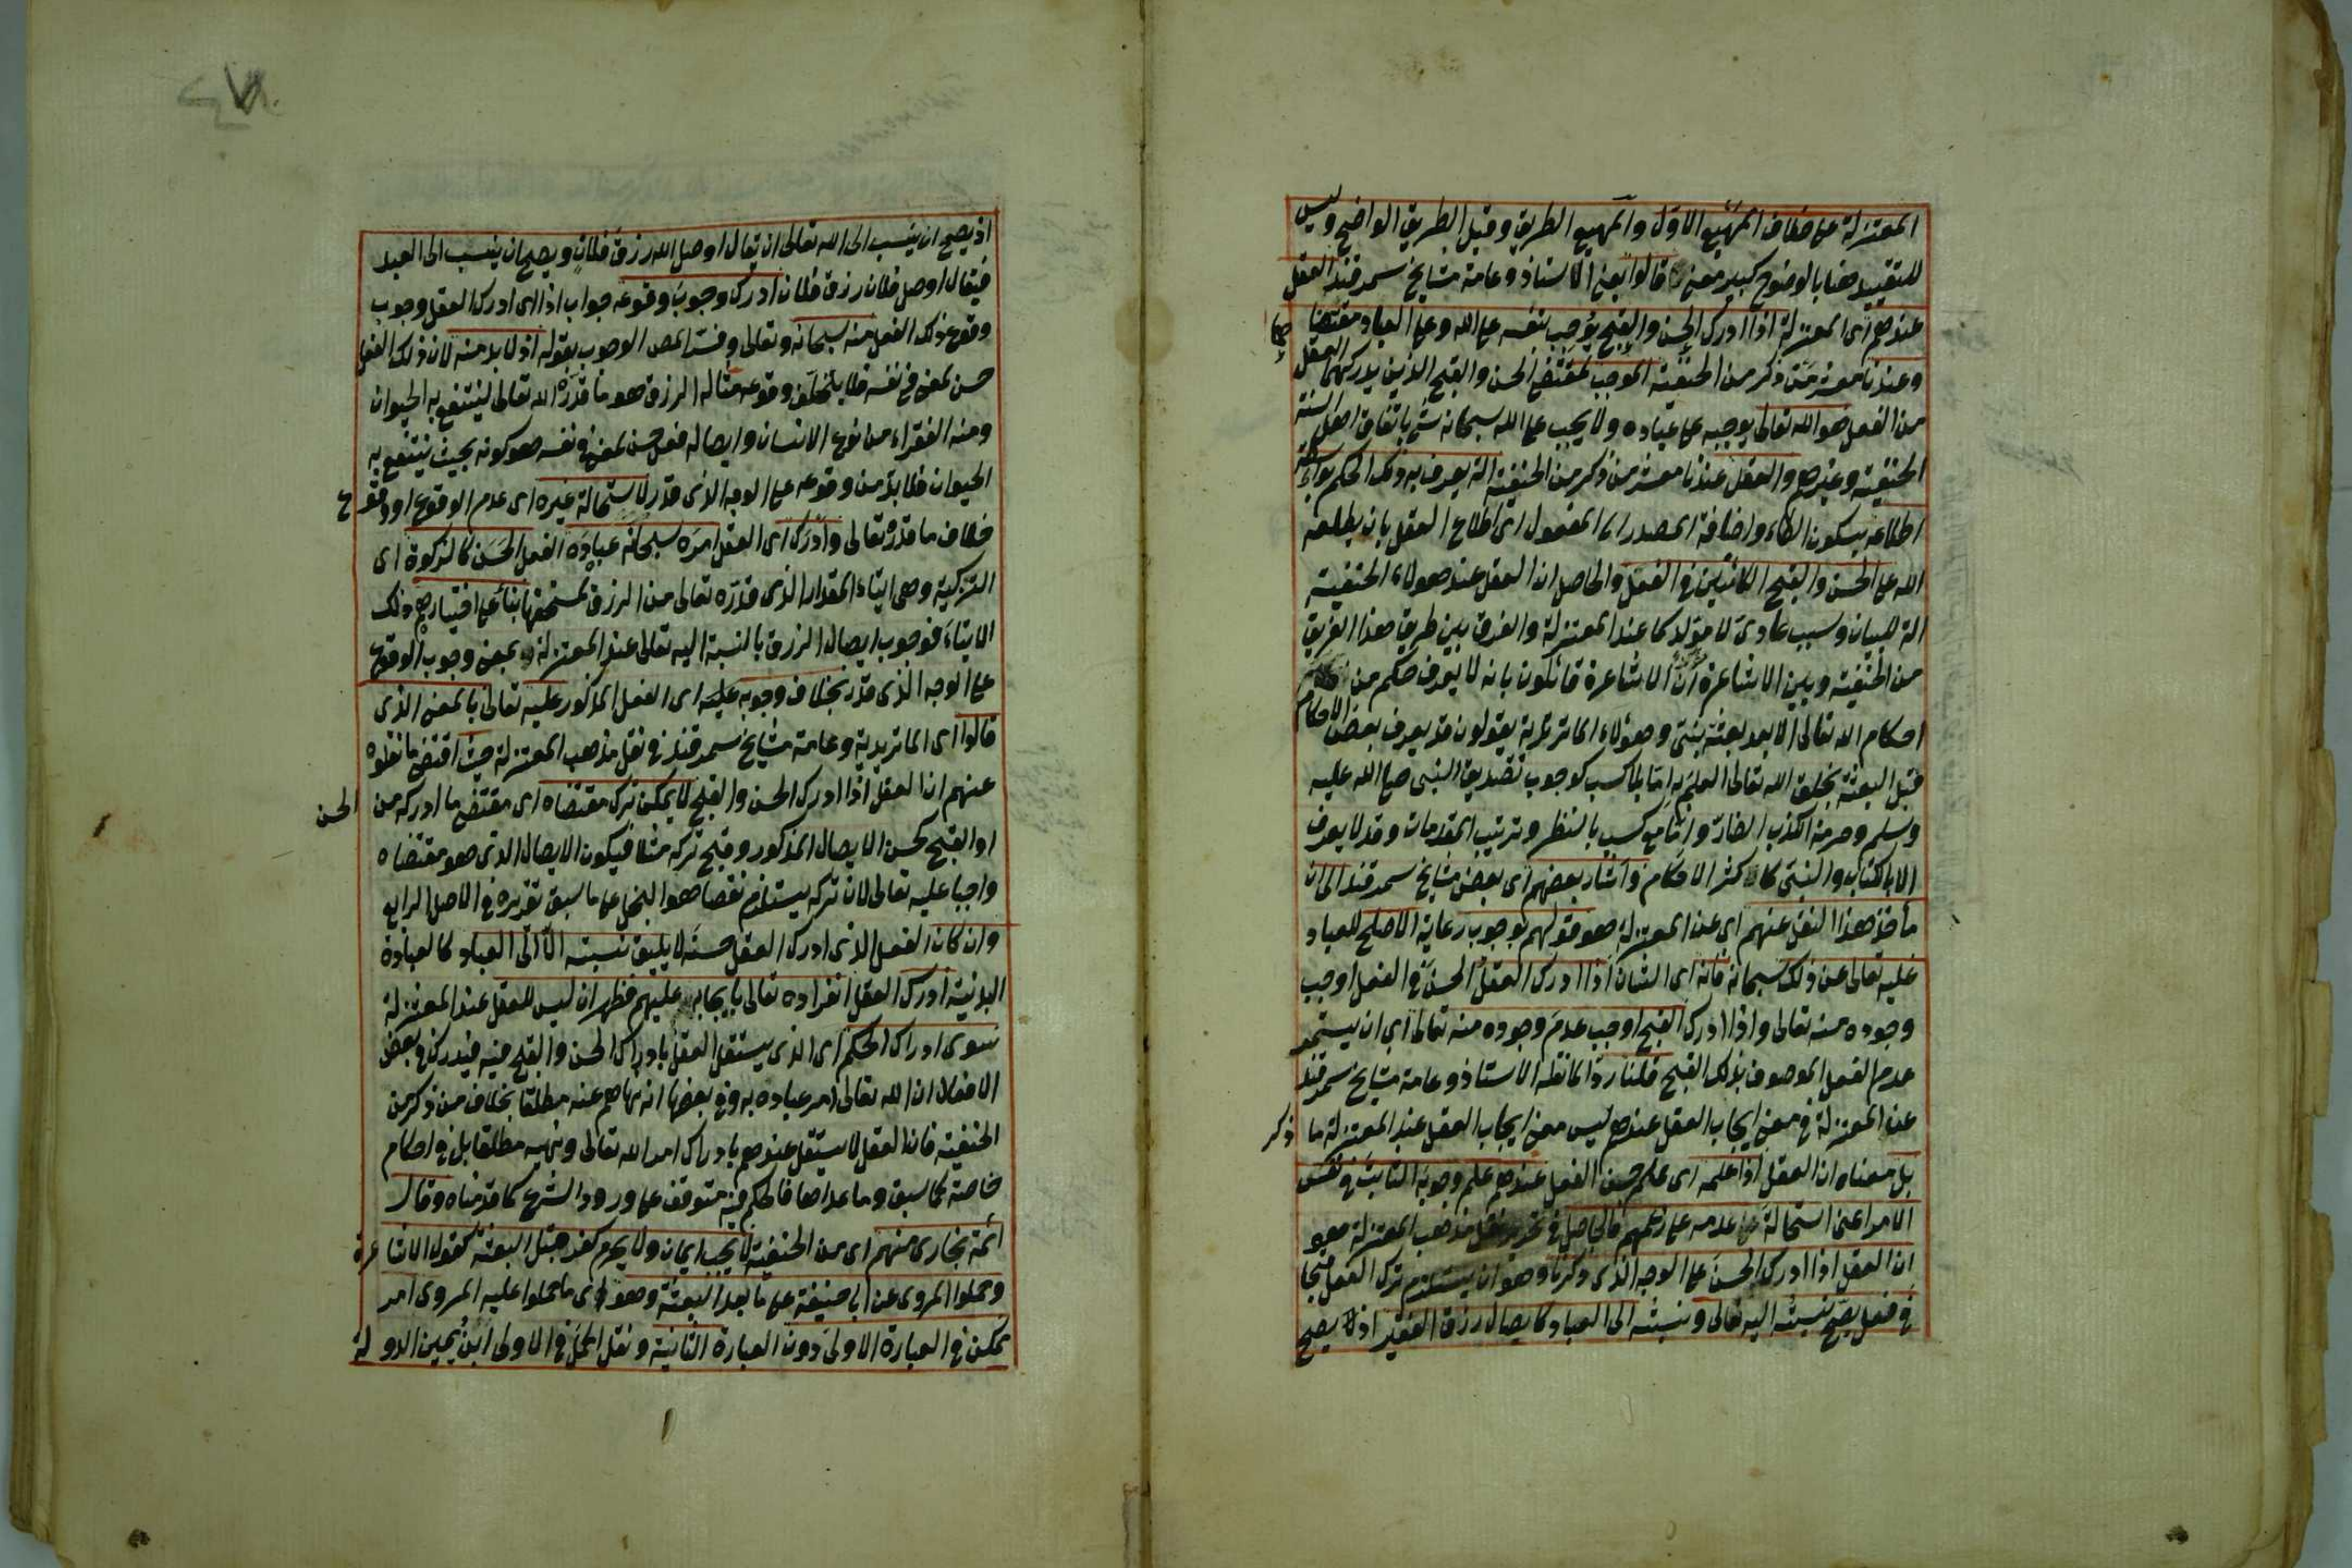 المعتزلة على خلاف المهيع الاول والمهيع الطريق وقيل الطريق الواضح وليس
للتقييد هنا بالوضوح كبير معنى قالوا يعنى الاستاذ وعامة مشايخ سمرقند العقل
عندهم اى المعتزلة اذا ادرك الحسن والقبح يوجب بنفسه على الله وعلى العباد مقتضاهما
وعندنا معشر من ذكر من الحنفية الموجب لمقتضى الحسن والقبح الذين يدركهما العقل
من الفعل هو الله تعالى يوجبه على عباده ولا يجب على الله سبحانه شئ باتفاق اهل السنة
الحنفية وغيرهم والعقل عندنا معشر من ذكر من الحنفية آلة يعرف به ذلك الحكم بواسطة
اطلاعه بسكون الطاء واضافة المصدر الى المفعول اى اطلاع العقل بان يطلعه
الله على الحسن والقبح الكائنين فى الفعل والحاصل ان العقل عند هولاء الحنفية
آلة للبيان وسبب عادى لا مولد كما عند المعتزلة والفرق بين طريق هذا الفريق
من الحنفية وبين الاشاعرة ان الاشاعرة قائلون بانه لا يعرف حكم من
احكام الله تعالى الا بعد بعثة نبى وهؤلاء الماتريدية يقولون قد يعرف بعض الاحكام
قبل البعثة بخلق الله تعالى العلم به اما بلا كسب كوجوب تصديق النبى صلى الله عليه
وسلم وحرمة الكذب الضار واما مع كسب بالنظر وترتيب المقدمات وقد لا يعرف
الا بالكتاب والنبى كاكثر الاحكام واشار بعضهم اى بعض مشايخ سمرقند الى ان
مأخذ هذا النقل عنهم اى عن المعتزلة هو قولهم بوجوب رعاية الاصلح للعباد
عليه تعالى عن ذلك سبحانه فانه اى الشان اذا ادرك العقل الحسن فى الفعل اوجب
وجوده منه تعالى واذا ادرك القبح اوجب عدم وجوده منه تعالى اى ان يستمر
عدم الفعل الموصوف بذلك القبح قلنا ردا لما نقله الاستاذ وعامة مشايخ سمرقند
عن المعتزلة فى معنى ايجاب العقل عندهم ليس معنى ايجاب العقل عند المعتزلة ما ذكر
بل معناه ان العقل اذا علمه اى علم حسن الفعل عندهم علم وجوبه الثابت فى نفس
الامر اعنى استحالة عدمه على زعمهم فالحاصل فى تحرير نقل مذهب المعتزلة هو
ان العقل اذا ادرك الحسن على الوجه الذى ذكرنا وهو ان يستلزم ترك الفعل قبحا
فى فعل يصح نسبته اليه تعالى ونسبته الى العباد كايصال رزق الفقير اذ يصح
اذ يصح ان ينسب الى الله تعالى ان يقال اوصل الله رزق فلان ويصح ان ينسب الى العبد
فيقال اوصل فلان رزق فلان ادرك وجوب وقوعه جواب اذا اى ادرك العقل وجوب
وقوع ذلك الفعل منه سبحانه وتعالى وفسر المص الوجوب بقوله اذ لا بد منه لان ذلك الفعل
حسن لمعنى فى نفسه فلا يتخلف وقوعه مثاله الرزق هو ما قدره الله تعالى لينتفع به الحيوان
ومنه الفقراء من نوع الانسان وايصاله فعل حسن لمعنى فى نفسه هو كونه بحيث ينتفع به
الحيوان فلا بد من وقوعه على الوجه الذى قدر لاستحالة غيره اى عدم الوقوع او وقوع
خلاف ما قدره تعالى وادرك اى العقل امره سبحانه عباده الفعل الحسن كالزكوة اى
التزكية وهى ايتاء المقدار الذى قدره تعالى من الرزق لمستحقها بناء على اختيارهم ذلك
الايتاء فوجوب ايصال الرزق بالنسبة اليه تعالى عند المعتزلة بمعنى وجوب الوقوع
على الوجه الذى قدر بخلاف وجوبه عليه اى الفعل المذكور عليه تعالى بالمعنى الذى
قالوا اى الماتريدية وعامة مشايخ سمرقند فى نقل مذهب المعتزلة حيث اقتضى ما نقلوه
عنهم ان العقل اذا ادرك الحسن والقبح لا يمكن ترك مقتضاه اى مقتضى ما ادركه من الحسن
او القبح كحسن الايصال المذكور وقبح تركه مثلا فيكون الايصال الذى هو مقتضاه
واجبا عليه تعالى لان تركه يستلزم نقصا هو البخل على ما سبق تقريره فى الاصل الرابع
وان كان الفعل الذى ادرك العقل حسنه لا يليق نسبته الا الى العباد كالعبادة
البدنية ادرك العقل انفراده تعالى بايجابه عليهم فظهر ان ليس للعقل عند المعتزلة
سوى ادراك الحكم اى الذى يستقل العقل بادراك الحسن والقبح فيه فيدرك فى بعض
الافعال ان الله تعالى امر عباده به وفى بعضها انه نهاهم عنه مطلقا بخلاف من ذكر من
الحنفية فان العقل لا يستقل عندهم بادراك امر الله تعالى ونهيه مطلقا بل فى احكام
خاصة كما سبق وما عداها فالحكم فيه متوقف على ورود الشرع كما قدمناه وقال
ائمة بخارى منهم اى من الحنفية لا يجب ايمان ولا يحرم كفر قبل البعثة كقول الاشاعرة
وحملوا المروى عن ابى حنيفة على ما بعد البعثة وهو اى ما حملوا عليه المروى امر
ممكن فى العبارة الاولى دون العبارة الثانية ونقل الحمل فى الاولى ابن يمين الدولة